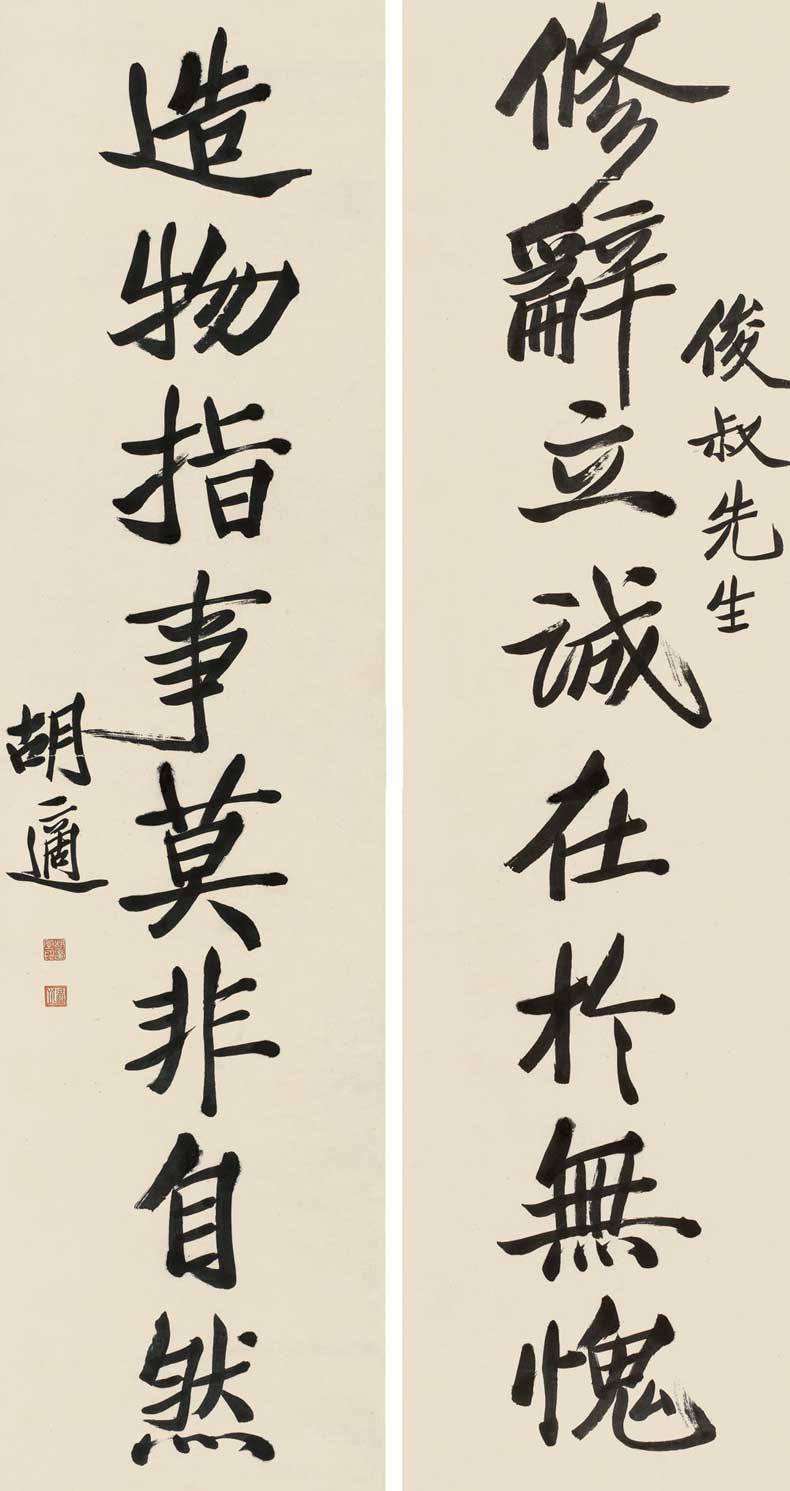 俊叔先生
修辭立誠在於無愧
造物指事莫非自然
胡適